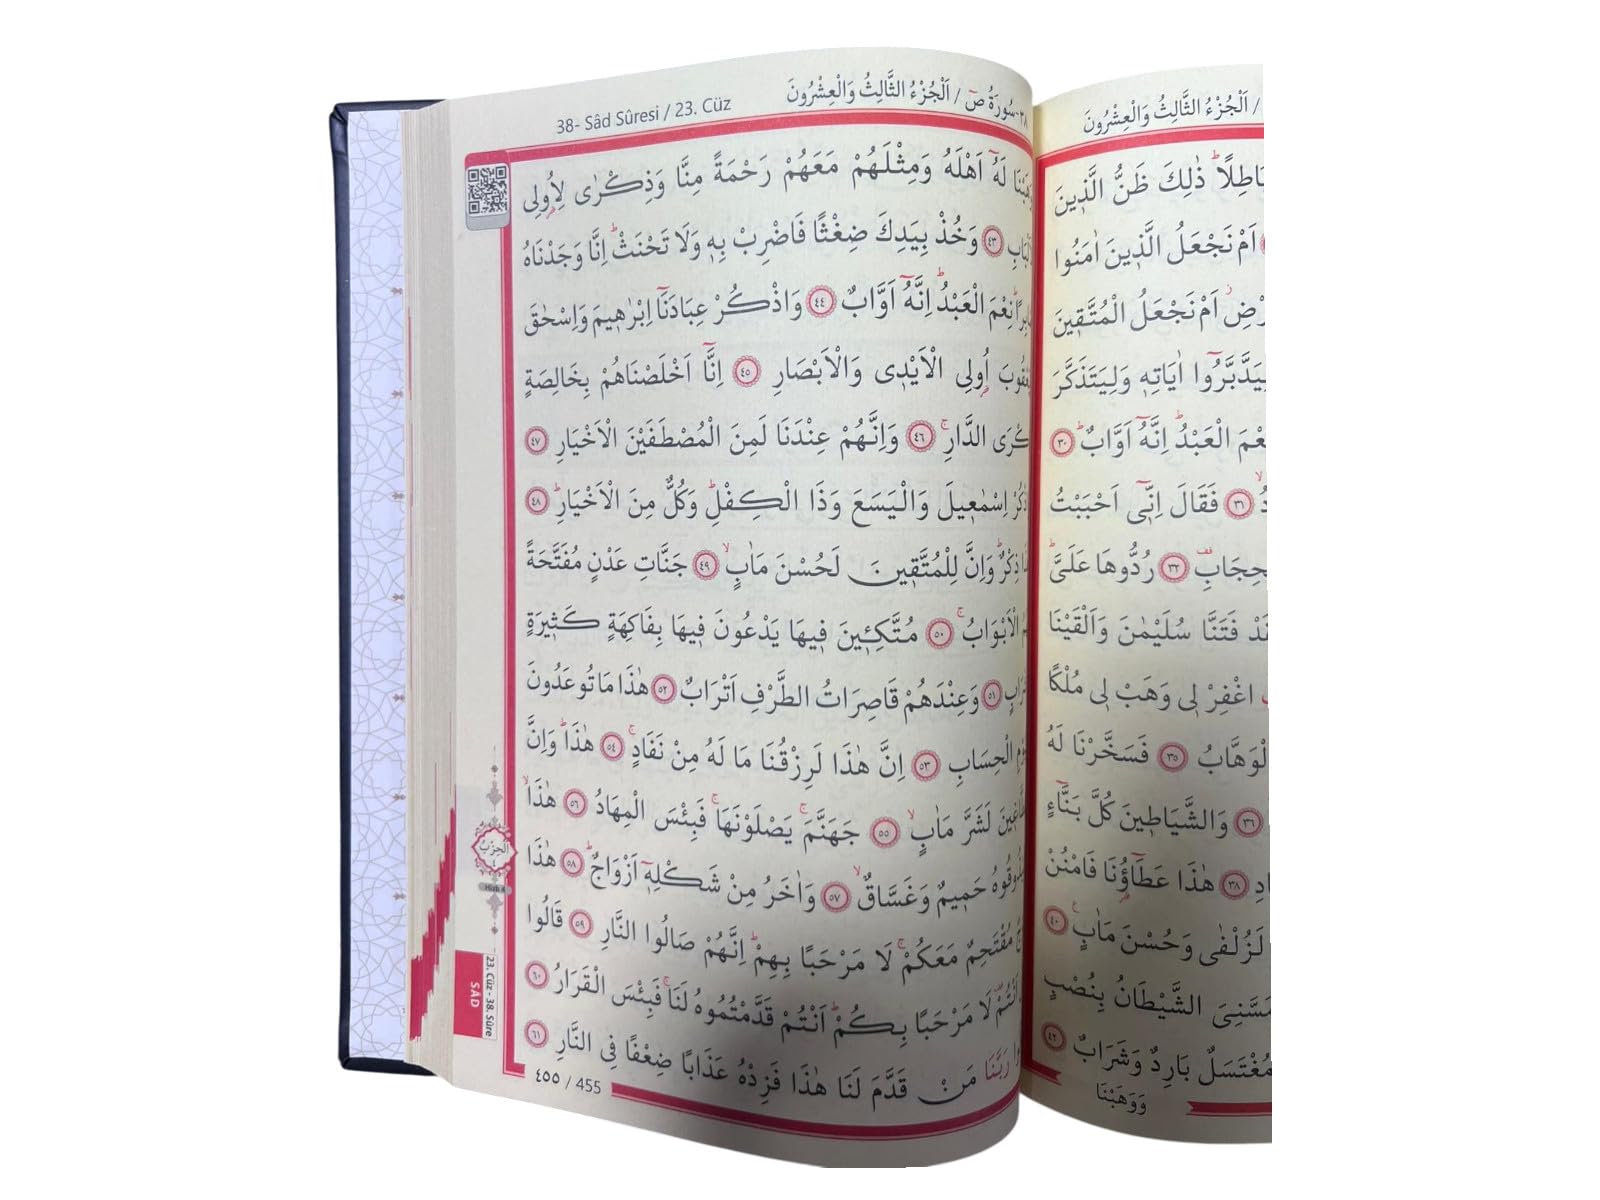 38- Sâd Sûresi / 23. Cüz
٣٨-سُورَةُ صٓ / اَلْجُزْءُ الثَّالِثُ وَالْعِشْرُونَ
لَهُٓ اَهْلَهُ وَمِثْلَهُمْ مَعَهُمْ رَحْمَةً مِنَّا وَذِكْرٰى لِاُو۬لِي
﴿٤٣﴾ وَخُذْ بِيَدِكَ ضِغْثًا فَاضْرِبْ بِه۪ وَلَا تَحْنَثْۜ اِنَّا وَجَدْنَاهُ
نِعْمَ الْعَبْدُۜ اِنَّهُٓ اَوَّابٌ ﴿٤٤﴾ وَاذْكُرْ عِبَادَنَٓا اِبْرٰه۪يمَ وَاِسْحٰقَ
اُو۬لِي الْاَيْد۪ي وَالْاَبْصَارِ ﴿٤٥﴾ اِنَّٓا اَخْلَصْنَاهُمْ بِخَالِصَةٍ
الدَّارِۚ ﴿٤٦﴾ وَاِنَّهُمْ عِنْدَنَا لَمِنَ الْمُصْطَفَيْنَ الْاَخْيَارِۜ ﴿٤٧﴾
اِسْمٰع۪يلَ وَالْيَسَعَ وَذَا الْكِفْلِۜ وَكُلٌّ مِنَ الْاَخْيَارِۜ ﴿٤٨﴾
ذِكْرٌۜ وَاِنَّ لِلْمُتَّق۪ينَ لَحُسْنَ مَاٰبٍۙ ﴿٤٩﴾ جَنَّاتِ عَدْنٍ مُفَتَّحَةً
الْاَبْوَابُۚ ﴿٥٠﴾ مُتَّكِـ۪ٔينَ ف۪يهَا يَدْعُونَ ف۪يهَا بِفَاكِهَةٍ كَث۪يرَةٍ
﴿٥١﴾ وَعِنْدَهُمْ قَاصِرَاتُ الطَّرْفِ اَتْرَابٌ ﴿٥٢﴾ هٰذَا مَا تُوعَدُونَ
الْحِسَابِ ﴿٥٣﴾ اِنَّ هٰذَا لَرِزْقُنَا مَا لَهُ مِنْ نَفَادٍۚ ﴿٥٤﴾ هٰذَاۜ وَاِنَّ
لَشَرَّ مَاٰبٍۙ ﴿٥٥﴾ جَهَنَّمَۚ يَصْلَوْنَهَاۚ فَبِئْسَ الْمِهَادُ ﴿٥٦﴾ هٰذَاۙ
حَم۪يمٌ وَغَسَّاقٌۙ ﴿٥٧﴾ وَاٰخَرُ مِنْ شَكْلِه۪ٓ اَزْوَاجٌۜ ﴿٥٨﴾ هٰذَا
مُقْتَحِمٌ مَعَكُمْۚ لَا مَرْحَبًا بِهِمْۜ اِنَّهُمْ صَالُوا النَّارِ ﴿٥٩﴾ قَالُوا
لَا مَرْحَبًا بِكُمْۜ اَنْتُمْ قَدَّمْتُمُوهُ لَنَاۚ فَبِئْسَ الْقَرَارُ ﴿٦٠﴾
رَبَّنَا مَنْ قَدَّمَ لَنَا هٰذَا فَزِدْهُ عَذَابًا ضِعْفًا فِي النَّارِ ﴿٦١﴾
٤٥٥ / 455
اَلْحِزْبُ
23. Cüz - 38. Sûre
SÂD
اَلْجُزْءُ الثَّالِثُ وَالْعِشْرُونَ
ذٰلِكَ ظَنُّ الَّذ۪ينَ
اَمْ نَجْعَلُ الَّذ۪ينَ اٰمَنُوا
اَمْ نَجْعَلُ الْمُتَّق۪ينَ
اٰيَاتِه۪ وَلِيَتَذَكَّرَ
الْعَبْدُۜ اِنَّهُٓ اَوَّابٌ ﴿٣٠﴾
﴿٣١﴾ فَقَالَ اِنّ۪ٓي اَحْبَبْتُ
﴿٣٢﴾ رُدُّوهَا عَلَيَّۜ
فَتَنَّا سُلَيْمٰنَ وَاَلْقَيْنَا
اغْفِرْ ل۪ي وَهَبْ ل۪ي مُلْكًا
﴿٣٥﴾ فَسَخَّرْنَا لَهُ
﴿٣٦﴾ وَالشَّيَاط۪ينَ كُلَّ بَنَّٓاءٍ
﴿٣٨﴾ هٰذَا عَطَٓاؤُ۬نَا فَامْنُنْ
لَزُلْفٰى وَحُسْنَ مَاٰبٍ ﴿٤٠﴾
الشَّيْطَانُ بِنُصْبٍ
بَارِدٌ وَشَرَابٌ ﴿٤٢﴾
وَوَهَبْنَا